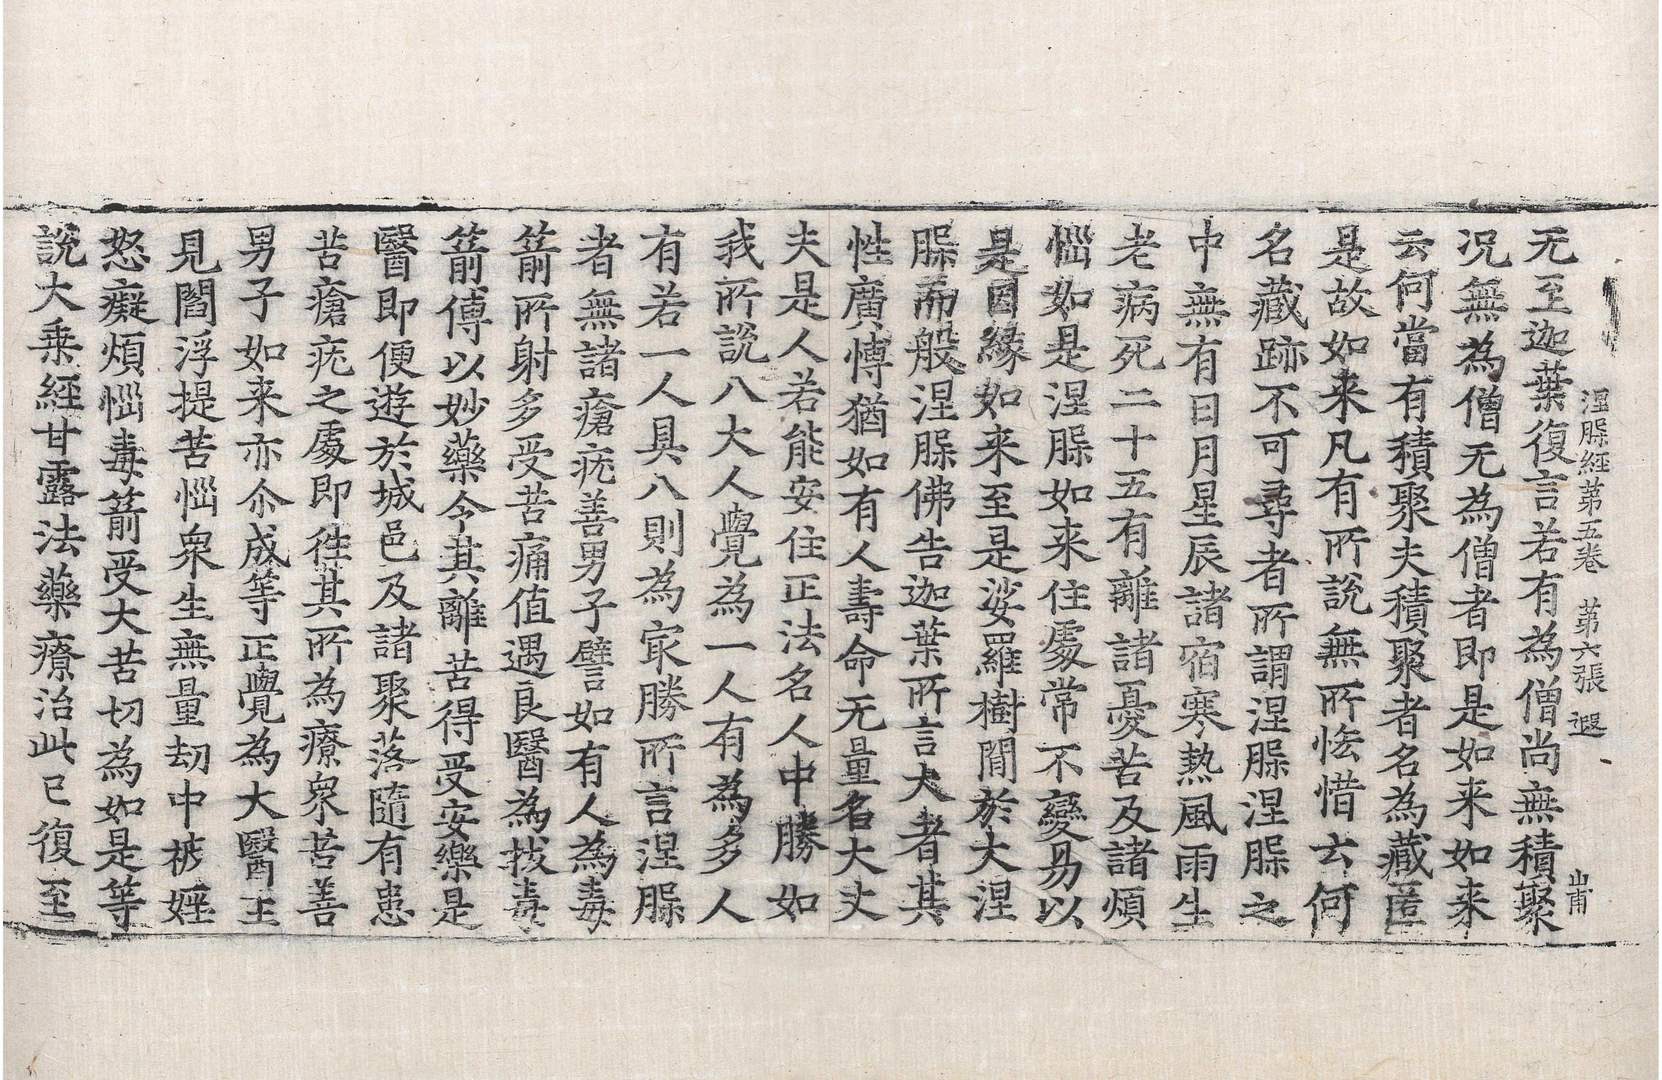 涅槃経苐五卷 苐六張 遐 山甫
无至迦葉復言若有為僧尚無積聚
况無為僧无為僧者即是如来如来
云何當有積聚夫積聚者名為藏匿
是故如来凡有所說無所悋惜云何
名藏跡不可尋者所謂涅槃涅槃之
中無有日月星辰諸宿寒熱風雨生
老病死二十五有離諸憂苦及諸煩
惱如是涅槃如来住處常不變易以
是因緣如来至是娑羅樹間於大涅
槃而般涅槃佛告迦葉所言大者其
性廣愽猶如有人壽命无量名大丈
夫是人若能安住正法名人中勝如
我所說八大人覺為一人有為多人
有若一人具八則為㝡勝所言涅槃
者無諸瘡疣善男子譬如有人為毒
箭所射多受苦痛值遇良醫為拔毒
箭傅以妙藥令其離苦得受安樂是
醫即便遊於城邑及諸聚落隨有患
苦瘡疣之處即往其所為療衆苦善
男子如来亦尒成等正覺為大醫王
見閻浮提苦惱衆生無量劫中被婬
怒癡煩惱毒箭受大苦切為如是等
說大乗經甘露法藥療治此已復至